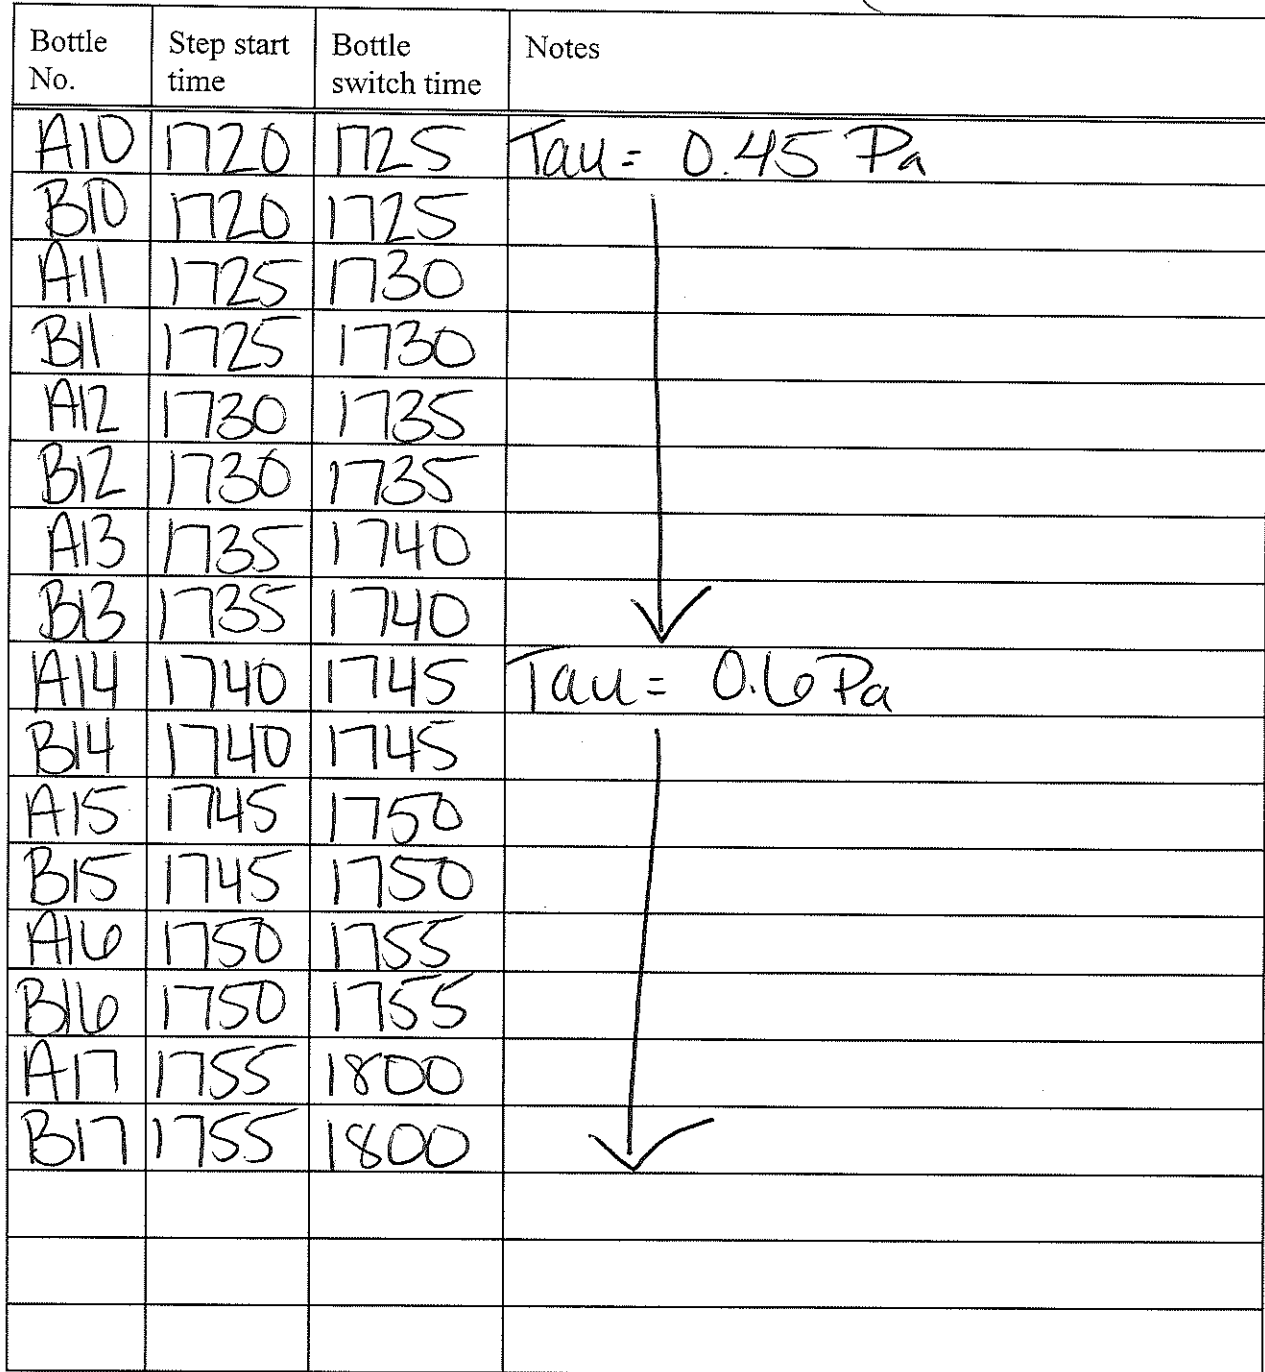 Bottle No. Step start time Bottle switch time Notes
A10 1720 1725 Tau = 0.45 Pa
B10 1720 1725
A11 1725 1730
B11 1725 1730
A12 1730 1735
B12 1730 1735
A13 1735 1740
B13 1735 1740
A14 1740 1745 Tau = 0.6 Pa
B14 1740 1745
A15 1745 1750
B15 1745 1750
A16 1750 1755
B16 1750 1755
A17 1755 1800
B17 1755 1800